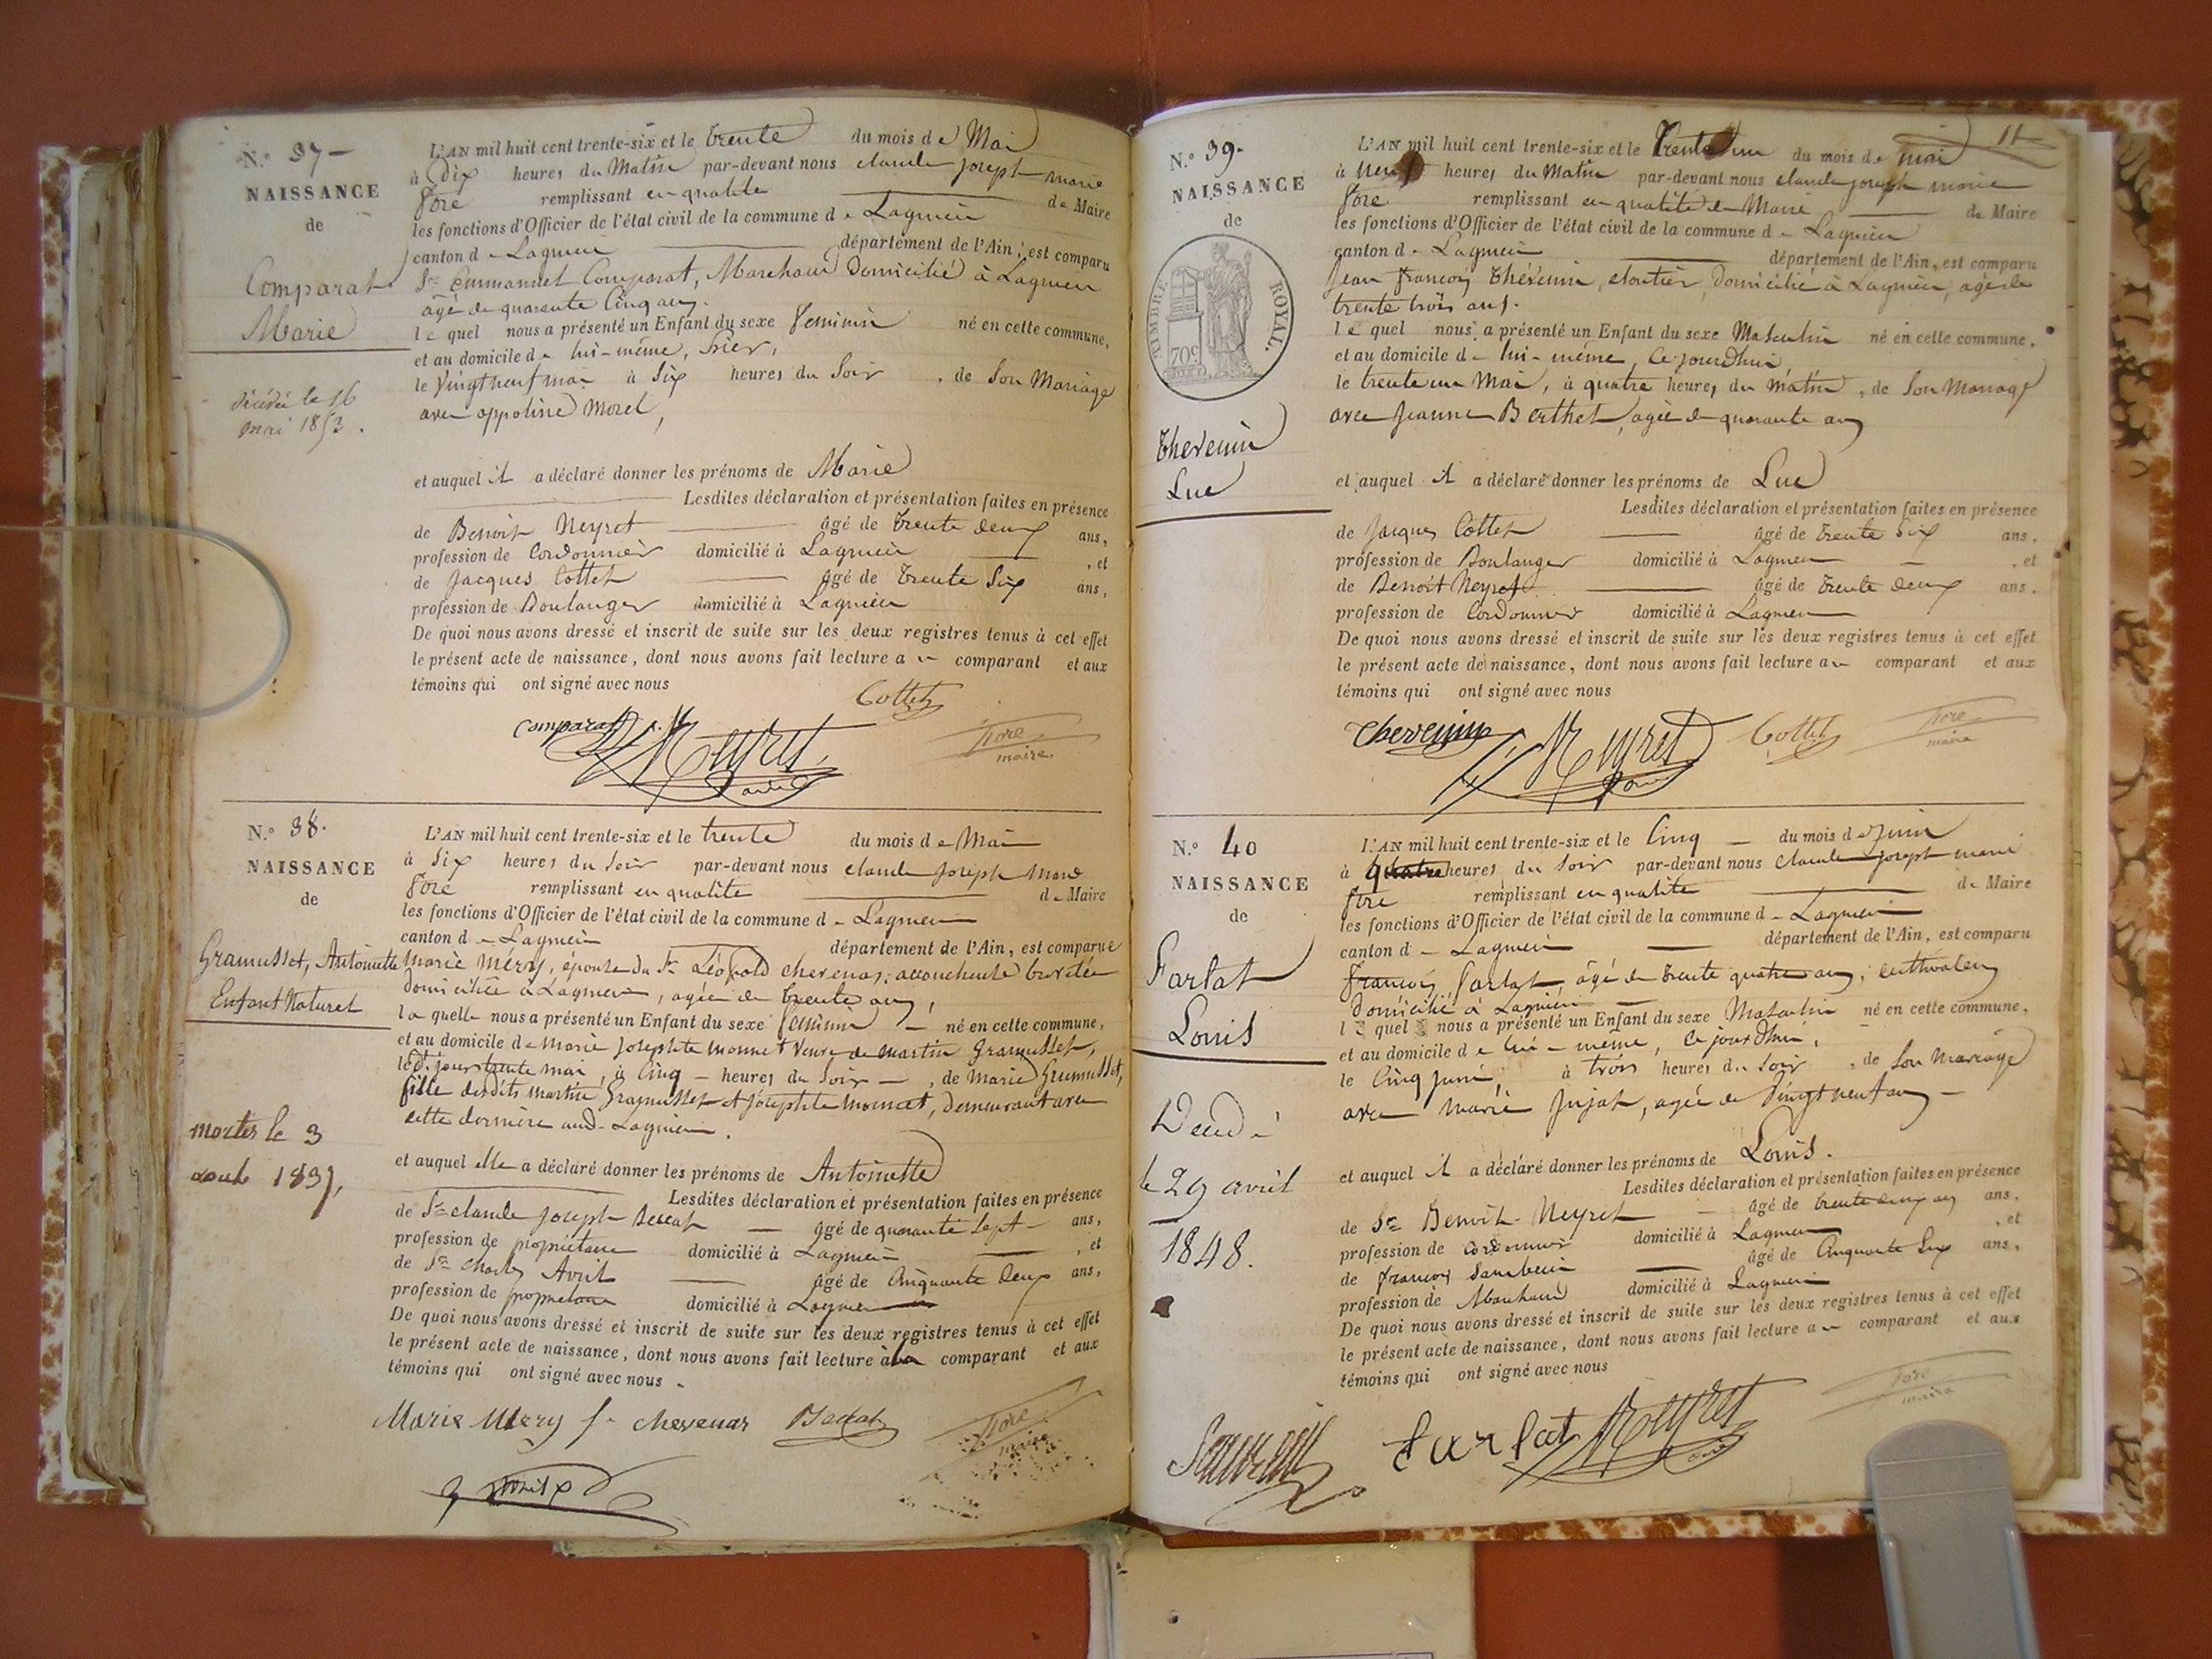 N.° 37 -
NAISSANCE
de
Comparat
Marie
décédée le 16
mai 1853.
L'AN mil huit cent trente-six et le trente du mois de Mai
à Dix heures du Matin par-devant nous claude joseph marie
foré remplissant en qualité de Maire
les fonctions d'Officier de l'état civil de la commune de Lagnieu
canton de Lagnieu département de l'Ain, est comparu
Sr Emmanuel Comparat, Marchand domicilié à Lagnieu
âgé de quarante Cinq ans.
le quel nous a présenté un Enfant du sexe feminin né en cette commune,
et au domicile de lui-même, hier,
le vingt neuf mai à Six heures du Soir, de Son Mariage
avec appoline Morel,
et auquel il a déclaré donner les prénoms de Marie
Lesdites déclaration et présentation faites en présence
de Benoit Neyret âgé de trente deux ans,
profession de Cordonnier domicilié à Lagnieu, et
de Jacques Cottet âgé de trente Six ans,
profession de Boulanger domicilié à Lagnieu
De quoi nous avons dressé et inscrit de suite sur les deux registres tenus à cet effet
le présent acte de naissance, dont nous avons fait lecture au comparant et aux
témoins qui ont signé avec nous
Cottet
Comparat Neyret foré
maire
N.° 38.
NAISSANCE
de
Gramusset, Antoinette
Enfant Naturel
morte le 3
août 1837,
L'AN mil huit cent trente-six et le trente du mois de Mai
à Six heures du Soir par-devant nous claude joseph marie
foré remplissant en qualité de Maire
les fonctions d'Officier de l'état civil de la commune de Lagnieu
canton de Lagnieu département de l'Ain, est comparue
Marie Méry, épouse du Sr Léopold chevenas, accoucheuse brevetée
domiciliée à Lagnieu, agée de trente ans,
la quelle nous a présenté un Enfant du sexe feminin né en cette commune,
et au domicile de Marie josephte monnet veuve de martin Gramusset,
led. jour trente mai, à Cinq heures du Soir, de Marie Gramusset,
fille desdits martin Gramusset et josephte monnet, demeurant avec
cette dernière aud. Lagnieu.
et auquel elle a déclaré donner les prénoms de Antoinette
Lesdites déclaration et présentation faites en présence
de Sr claude joseph âgé de quarante Sept ans,
profession de propriétaire domicilié à Lagnieu, et
de Sr Charles Avril âgé de Cinquante deux ans,
profession de propriétaire domicilié à Lagnieu
De quoi nous avons dressé et inscrit de suite sur les deux registres tenus à cet effet
le présent acte de naissance, dont nous avons fait lecture à la comparant et aux
témoins qui ont signé avec nous.
Marie Mery fe chevenas foré
maire
Avril
11
N.° 39.
NAISSANCE
de
TIMBRE ROYAL.
70c
Thevenin
Luc
L'AN mil huit cent trente-six et le trente un du mois de mai
à neuf heures du Matin par-devant nous claude joseph marie
foré remplissant en qualité de Maire de Maire
les fonctions d'Officier de l'état civil de la commune de Lagnieu
canton de Lagnieu département de l'Ain, est comparu
Jean françois Thévenin, cloutier, domicilié à Lagnieu, agé de
trente trois ans.
le quel nous a présenté un Enfant du sexe Masculin né en cette commune,
et au domicile de lui-même, ce jourdhui,
le trente un Mai, à quatre heures du matin, de Son Mariage
avec Jeanne Berthet, agée de quarante ans
et auquel il a déclaré donner les prénoms de Luc
Lesdites déclaration et présentation faites en présence
de Jacques Cottet âgé de trente Six ans,
profession de Boulanger domicilié à Lagnieu, et
de Benoit Neyret âgé de trente deux ans,
profession de Cordonnier domicilié à Lagnieu
De quoi nous avons dressé et inscrit de suite sur les deux registres tenus à cet effet
le présent acte de naissance, dont nous avons fait lecture au comparant et aux
témoins qui ont signé avec nous
Thevenin Neyret Cottet foré
maire
N.° 40
NAISSANCE
de
Farlat
Louis
Décédé
le 29 avril
1848.
L'AN mil huit cent trente-six et le Cinq du mois de Juin
à quatre heures du Soir par-devant nous claude joseph marie
foré remplissant en qualité de Maire
les fonctions d'Officier de l'état civil de la commune de Lagnieu
canton de Lagnieu département de l'Ain, est comparu
françois farlat, âgé de trente quatre ans, cultivateur
domicilié à Lagnieu
le quel nous a présenté un Enfant du sexe Masculin né en cette commune,
et au domicile de lui-même, ce jourdhui,
le Cinq Juin, à trois heures du Soir, de Son Mariage
avec marie Jujat, agée de Vingt neuf ans
et auquel il a déclaré donner les prénoms de Louis.
Lesdites déclaration et présentation faites en présence
de Sr Benoit Neyret âgé de trente deux ans ans,
profession de cordonnier domicilié à Lagnieu, et
de françois âgé de Cinquante Six ans,
profession de Marchand domicilié à Lagnieu
De quoi nous avons dressé et inscrit de suite sur les deux registres tenus à cet effet
le présent acte de naissance, dont nous avons fait lecture au comparant et aux
témoins qui ont signé avec nous
farlat Neyret foré
maire